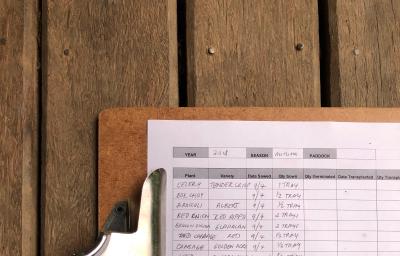 YEAR 2018 SEASON AUTUMN PADDOCK
Plant Variety Date Sowed Qty Sown Qty Germinated Date Transplanted Qty Transpl
CELERY TENDER CRISP 9/4 1 TRAY
BOK CHOY 9/4 1/2 TRAY
BROCCOLI ALBERT 9/4 1/2 TRAY
RED ONION RED 9/4 2 TRAY
BROWN ONION 9/4 2 TRAY
RED CABBAGE RED 9/4 1/2 TRAY
CABBAGE GOLDEN ACRE 9/4 1/2 TRAY